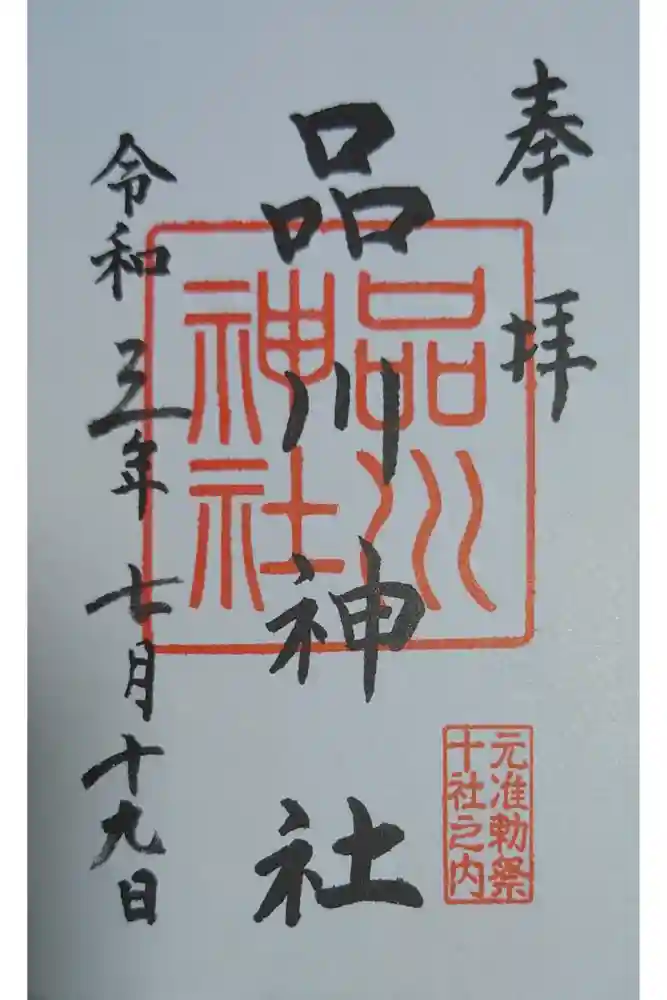 奉拝
品川神社
品川
神社
元准勅祭
十社之内
令和三年七月十九日